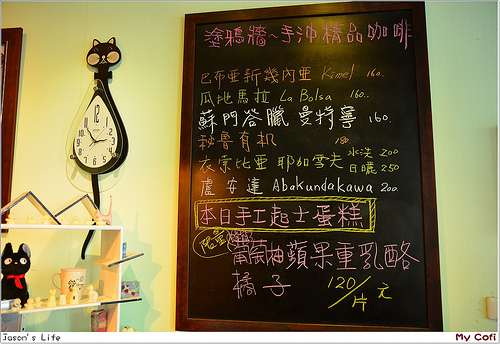 塗鴉牆~手沖精品咖啡
巴布亞新幾內亞 Kimel 160.
瓜地馬拉 La Bolsa 160..
蘇門答臘 曼特寧 160.
秘魯有机 180
衣索比亞 耶加雪夫 水洗 200
日曬 250
盧安達 Abakundakawa 200.
本日手工起士蛋糕
限量
葡萄柚蘋果重乳酪
橘子 120/片 元
12
Jason's Life
My Cofi